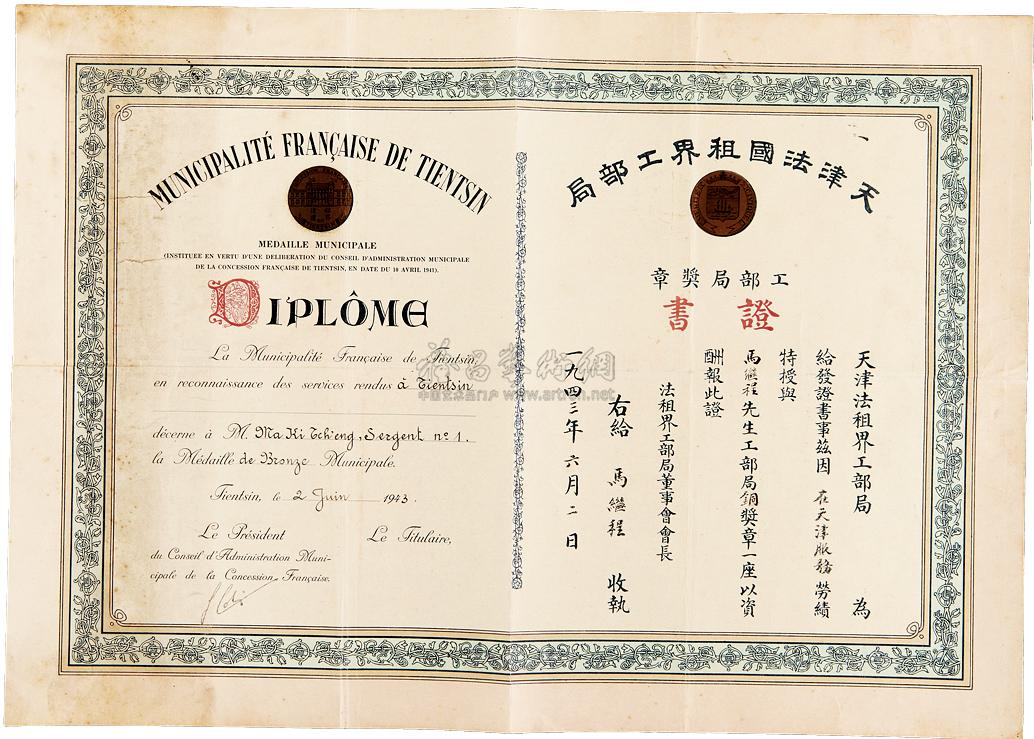 MUNICIPALITÉ FRANÇAISE DE TIENTSIN
MEDAILLE MUNICIPALE
(INSTITUEE EN VERTU D'UNE DELIBERATION DU CONSEIL D'ADMINISTRATION MUNICIPALE
DE LA CONCESSION FRANÇAISE DE TIENTSIN, EN DATE DU 10 AVRIL 1941).
DIPLÔME
La Municipalité Française de Tientsin
en reconnaissance des services rendus à Tientsin
décerne à M. Ma Ki Tch'eng, Sergent nº 1.
la Médaille de Bronze Municipale.
Tientsin, le 2 Juin 1943.
Le Président
Le Titulaire,
du Conseil d'Administration Muni-
cipale de la Concession Française.
天津法國租界工部局
工部局獎章
證書
天津法租界工部局 為
給發證書事茲因 在天津服務 勞績
特授與
馬繼程先生工部局銅獎章一座以資
酬報此證
法租界工部局董事會會長
右給 馬繼程 收執
一九四三年六月二日
中国艺术品门户 www.artron.net